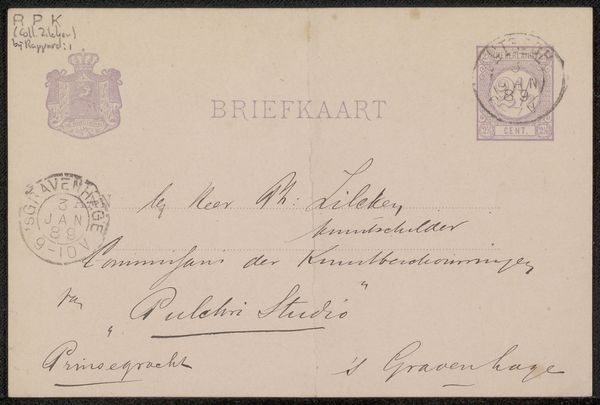 R P K
(Coll. Zilcken)
bij Rappard: 1
BRIEFKAART
NEDERLAND
3
JAN
89
V
2½
CENT.
'SGRAVENHAGE
3
JAN
89
9-10V
Heer Ph: Zilcken,
kunstschilder
Commissaris der Kunstbeschouwingen
van
"Pulchri Studio"
Prinsegracht
's Gravenhage